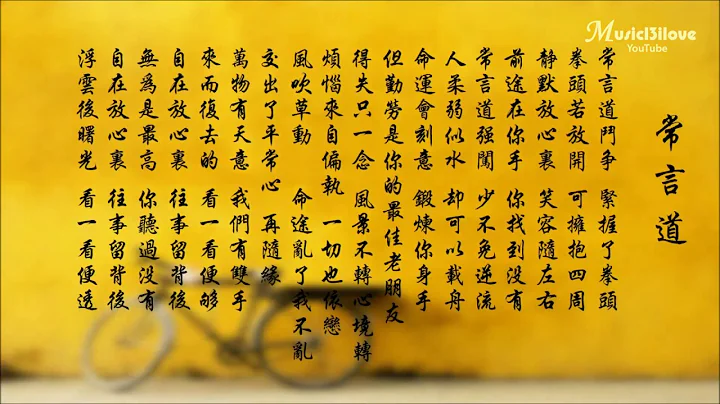 Music13ilove
YouTube
常言道
常言道鬥爭 緊握了拳頭
拳頭若放開 可擁抱四周
靜默放心裏 笑容隨左右
前途在你手 你找到沒有
常言道强闖 少不免逆流
人柔弱似水 却可以載舟
命運會刻意 鍛煉你身手
但勤勞是你的最佳老朋友
得失只一念 風景不轉心境轉
煩惱來自偏執 一切也依戀
風吹草動 命途亂了我不亂
交出了平常心 再隨緣
萬物有天意 我們有雙手
來而復去的 看一看便够
自在放心裏 往事留背後
無爲是最高 你聽過没有
自在放心裏 往事留背後
浮雲後曙光 看一看便透